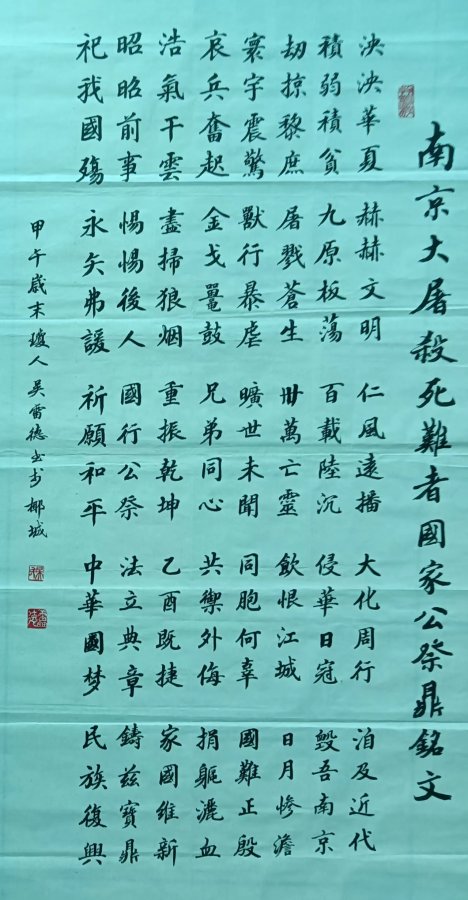 南京大屠殺死難者國家公祭鼎銘文
泱泱華夏 赫赫文明 仁風遠播 大化周行 洎及近代
積弱積貧 九原板蕩 百載陸沉 侵華日冦 毀吾南京
劫掠黎庶 屠戮蒼生 卅萬亡靈 飲恨江城 日月慘澹
寰宇震驚 獸行暴虐 曠世未聞 同胞何辜 國難正殷
哀兵奮起 金戈鼉鼓 兄弟同心 共禦外侮 捐軀灑血
浩氣干雲 盡掃狼烟 重振乾坤 乙酉既捷 家國維新
昭昭前事 惕惕後人 國行公祭 法立典章 鑄茲寶鼎
祀我國殤 永矢弗諼 祈願和平 中華國梦 民族復興
甲午歲末瓊人吳雷德书於椰城